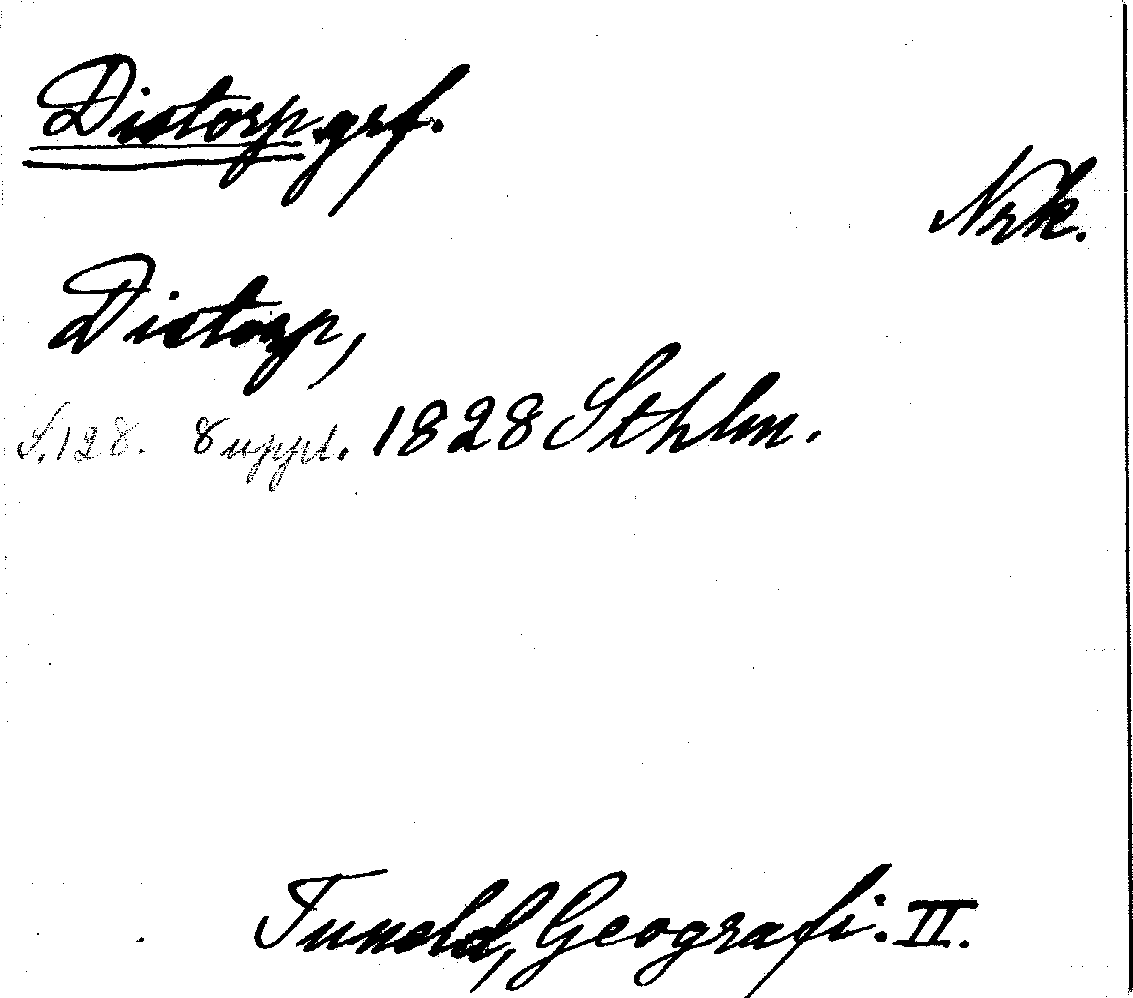 Distorp grf.
Nrk.
Distorp,
S. 128. Suppl. 1828 Sthlm.
Tuneld, Geografi. II.